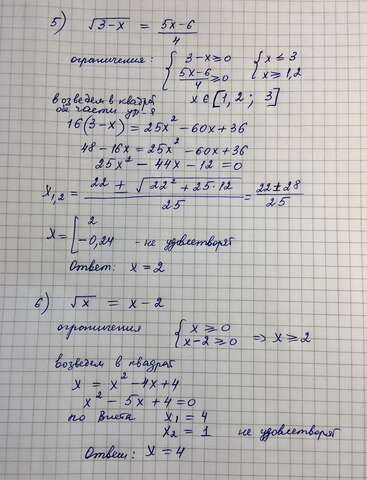 5) √3-x = 5x-6/4
ограничения: { 3-x≥0 { x≤3
5x-6/4 ≥0 x≥1,2
возведем в квадрат x∈[1,2; 3]
об части ур-я
16(3-x) = 25x² -60x+36
48-16x = 25x² -60x+36
25x² - 44x -12 = 0
x₁,₂ = 22 ± √22² + 25·12 / 25 = 22±28/25
x = [ 2
-0,24 - не удовлетворят
Ответ: x = 2
6) √x = x-2
ограничения { x≥0
x-2≥0 => x≥2
возведем в квадрат
x = x² -4x+4
x² - 5x +4=0
по Виета x₁ = 4
x₂ = 1 не удовлетворят
Ответ: x = 4